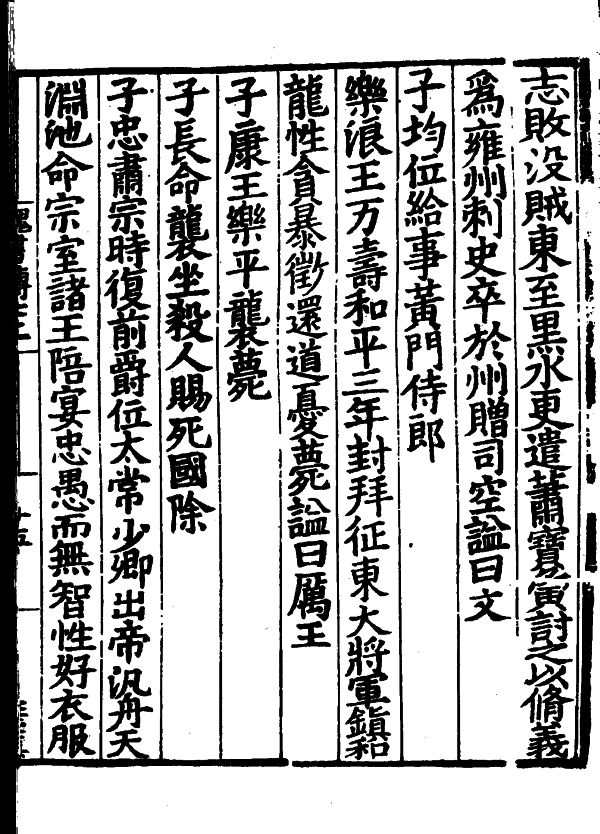 志敗没賊東至黒水更遣蕭寶夤討之以脩義
爲雍州刺史卒於州贈司空謚曰文
子均位給事黃門侍郎
樂浪王万壽和平三年封拜征東大將軍鎮和
龍性貪暴徵還道憂薨謚曰厲王
子康王樂平襲薨
子長命襲坐殺人賜死國除
子忠肅宗時復前爵位太常少卿出帝汎舟天
淵池命宗室諸王陪宴忠愚而無智性好衣服